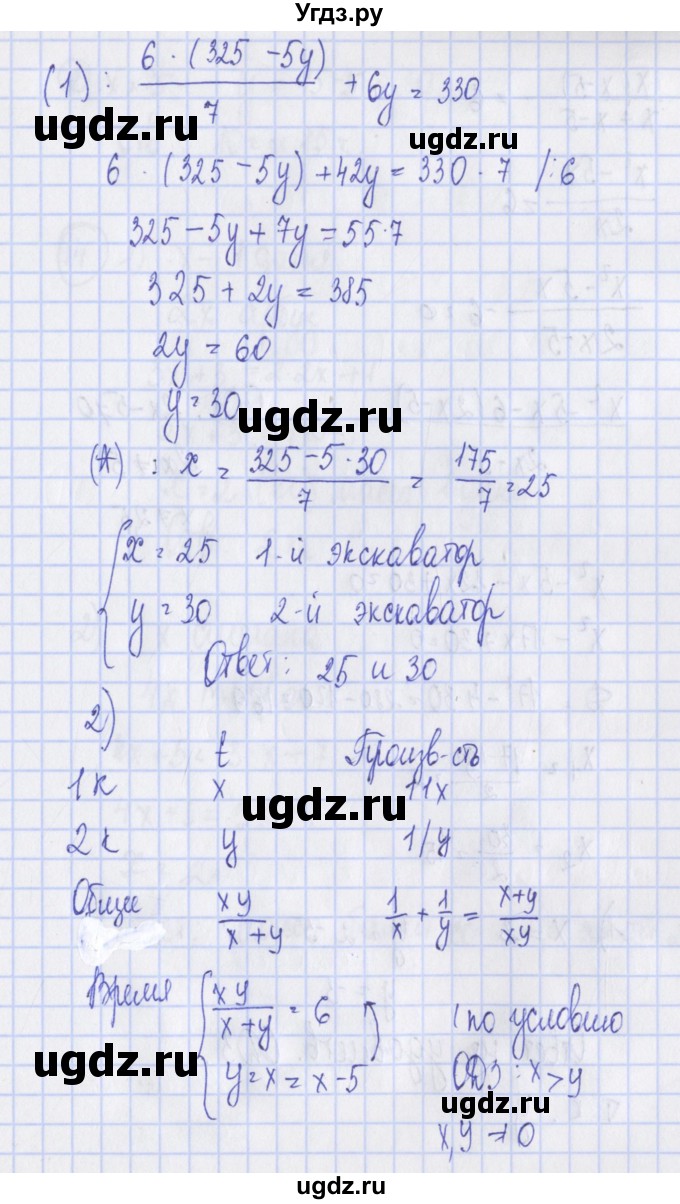 Угдз.ру
(1): 6 · (325 - 5y) / 7 + 6y = 330
ugdz.ru
ugdz.ru
6 · (325 - 5y) + 42y = 330 · 7 /:6
325 - 5y + 7y = 55·7
325 + 2y = 385
2y = 60
y = 30
ugdz.ru
(*) : x = 325 - 5·30 / 7 = 175 / 7 = 25
{ x = 25 1-й экскаватор
y = 30 2-й экскаватор
Ответ: 25 и 30
2)
t Произв-сть
1к x 11x
ugdz.ru
2к y 1/y
Общее xy / x+y 1/x + 1/y = x+y / xy
Время { xy / x+y = 6 (по условию
ugdz.ru
y = x = x - 5 ОДЗ: x > y
ugdz.ru
x, y ≠ 0
ugdz.ru